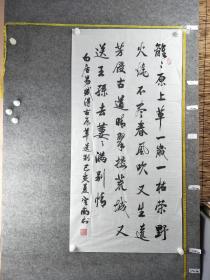 離〻原上草一歲一枯荣野
火燒不尽春風吹又生遠
芳侵古道晴翠接荒城又
送王孫去萋〻满别情
白居易賦得古原草送别己亥夏